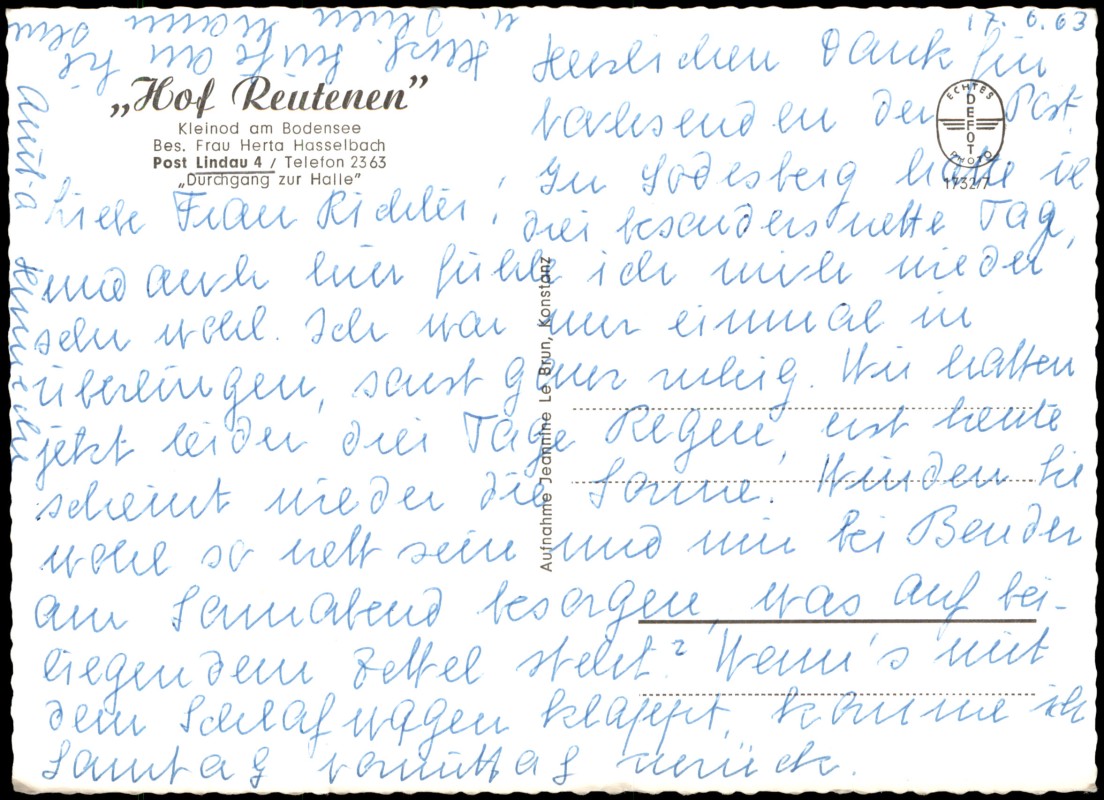 17. 6. 63
„Hof Reutenen”
Kleinod am Bodensee
Bes. Frau Herta Hasselbach
Post Lindau 4 / Telefon 2363
„Durchgang zur Halle”
ECHTES
DEFOT
PHOTO
1732/7
Aufnahme Jeannine Le Brun, Konstanz
Liebe Frau Richter!
Herzlichen Dank für
Nachsenden der Post.
In Godesberg hatte ich
drei besonders nette Tage,
und auch hier fühle ich mich wieder
sehr wohl. Ich war nur einmal in
Überlingen, sonst immer ruhig. Wir hatten
jetzt leider drei Tage Regen, erst heute
scheint wieder die Sonne! Würden Sie
wohl so nett sein und mir bei Bender
am Sonnabend besorgen, was auf bei-
liegendem Zettel steht? Wenn's mit
dem Schlafwagen klappt, komme ich
Sonntag vormittag zurück.